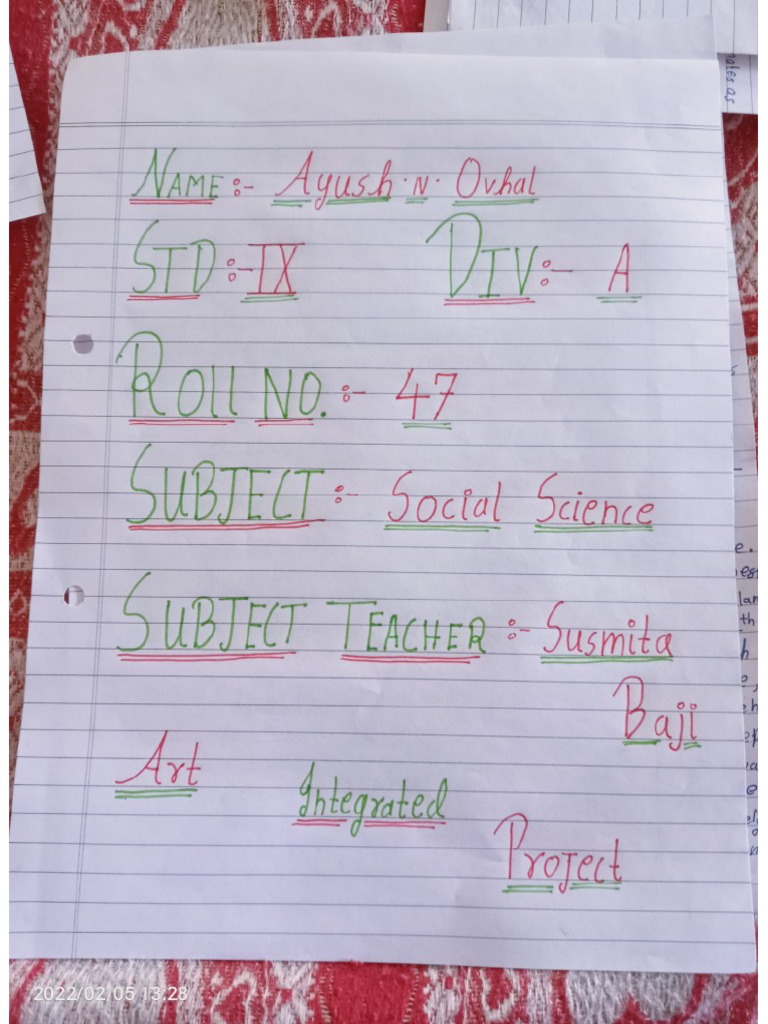 nales as
NAME :- Ayush · N · Ovhal
STD :- IX DIV :- A
ROLL NO. :- 47
SUBJECT :- Social Science
SUBJECT TEACHER :- Susmita
Baji
Art
Integrated
Project
2022/02/05 13:28